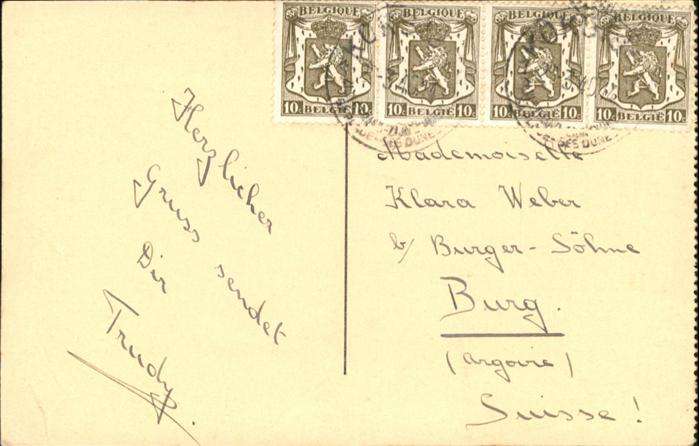 BELGIQUE BELGIQUE BELGIQUE BELGIQUE
10c BELGIË 10c 10c BELGIË 10c 10c BELGIË 10c 10c BELGIË 10c
Herzlicher
Gruss sendet
Dir
Trudy
Mademoiselle
Klara Weber
b/ Burger-Söhne
Burg.
(Argovie)
Suisse!